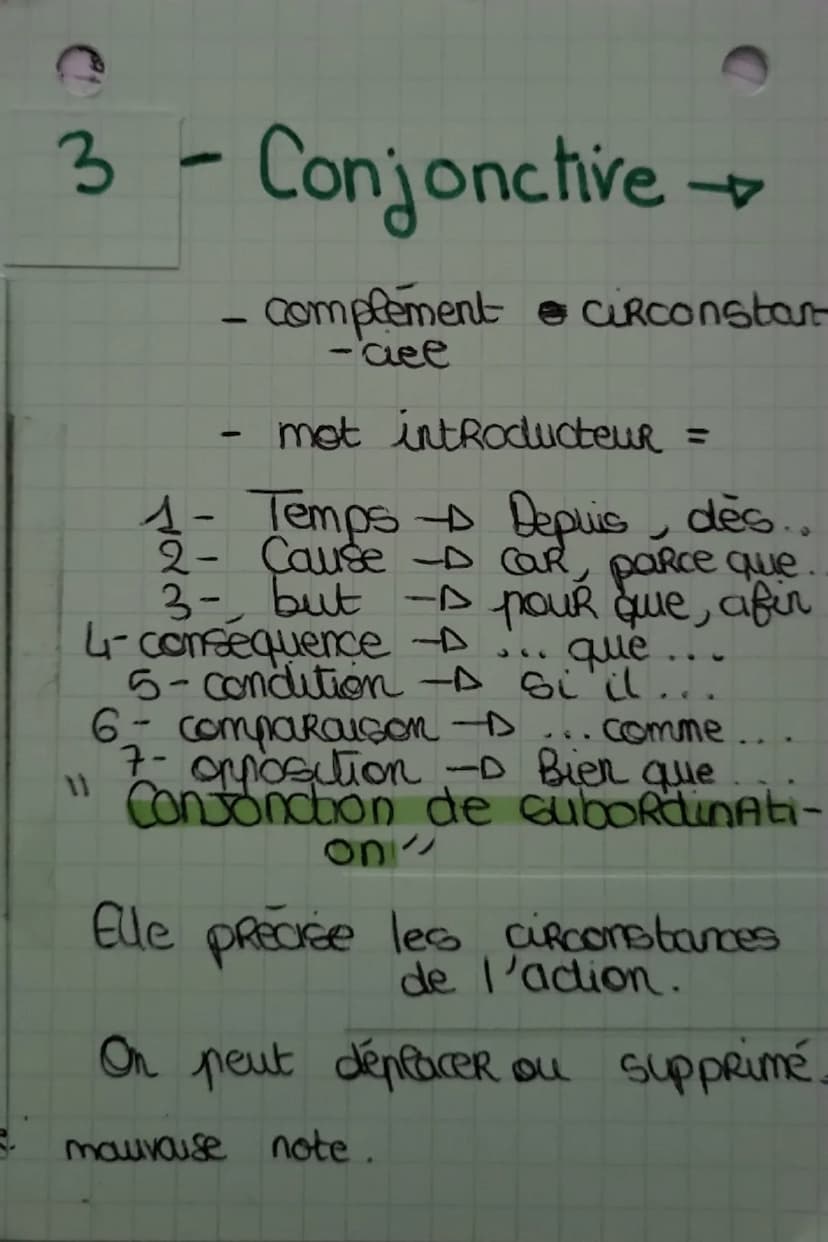 3 - Conjonctive →
- complément circonstan
-ciee
- mot introducteur =
1 - Temps → Depuis, dès..
2 - Cause → car, parce que.
3 - but → pour que, afin
4 - conséquence → ... que ...
5 - condition → si il ...
6 - comparaison → ... comme ...
7 - opposition → Bien que ...
" Conjonction de subordinati-
on "
Elle précise les circonstances
de l'action.
On peut déplacer ou supprimé.
mauvaise note.